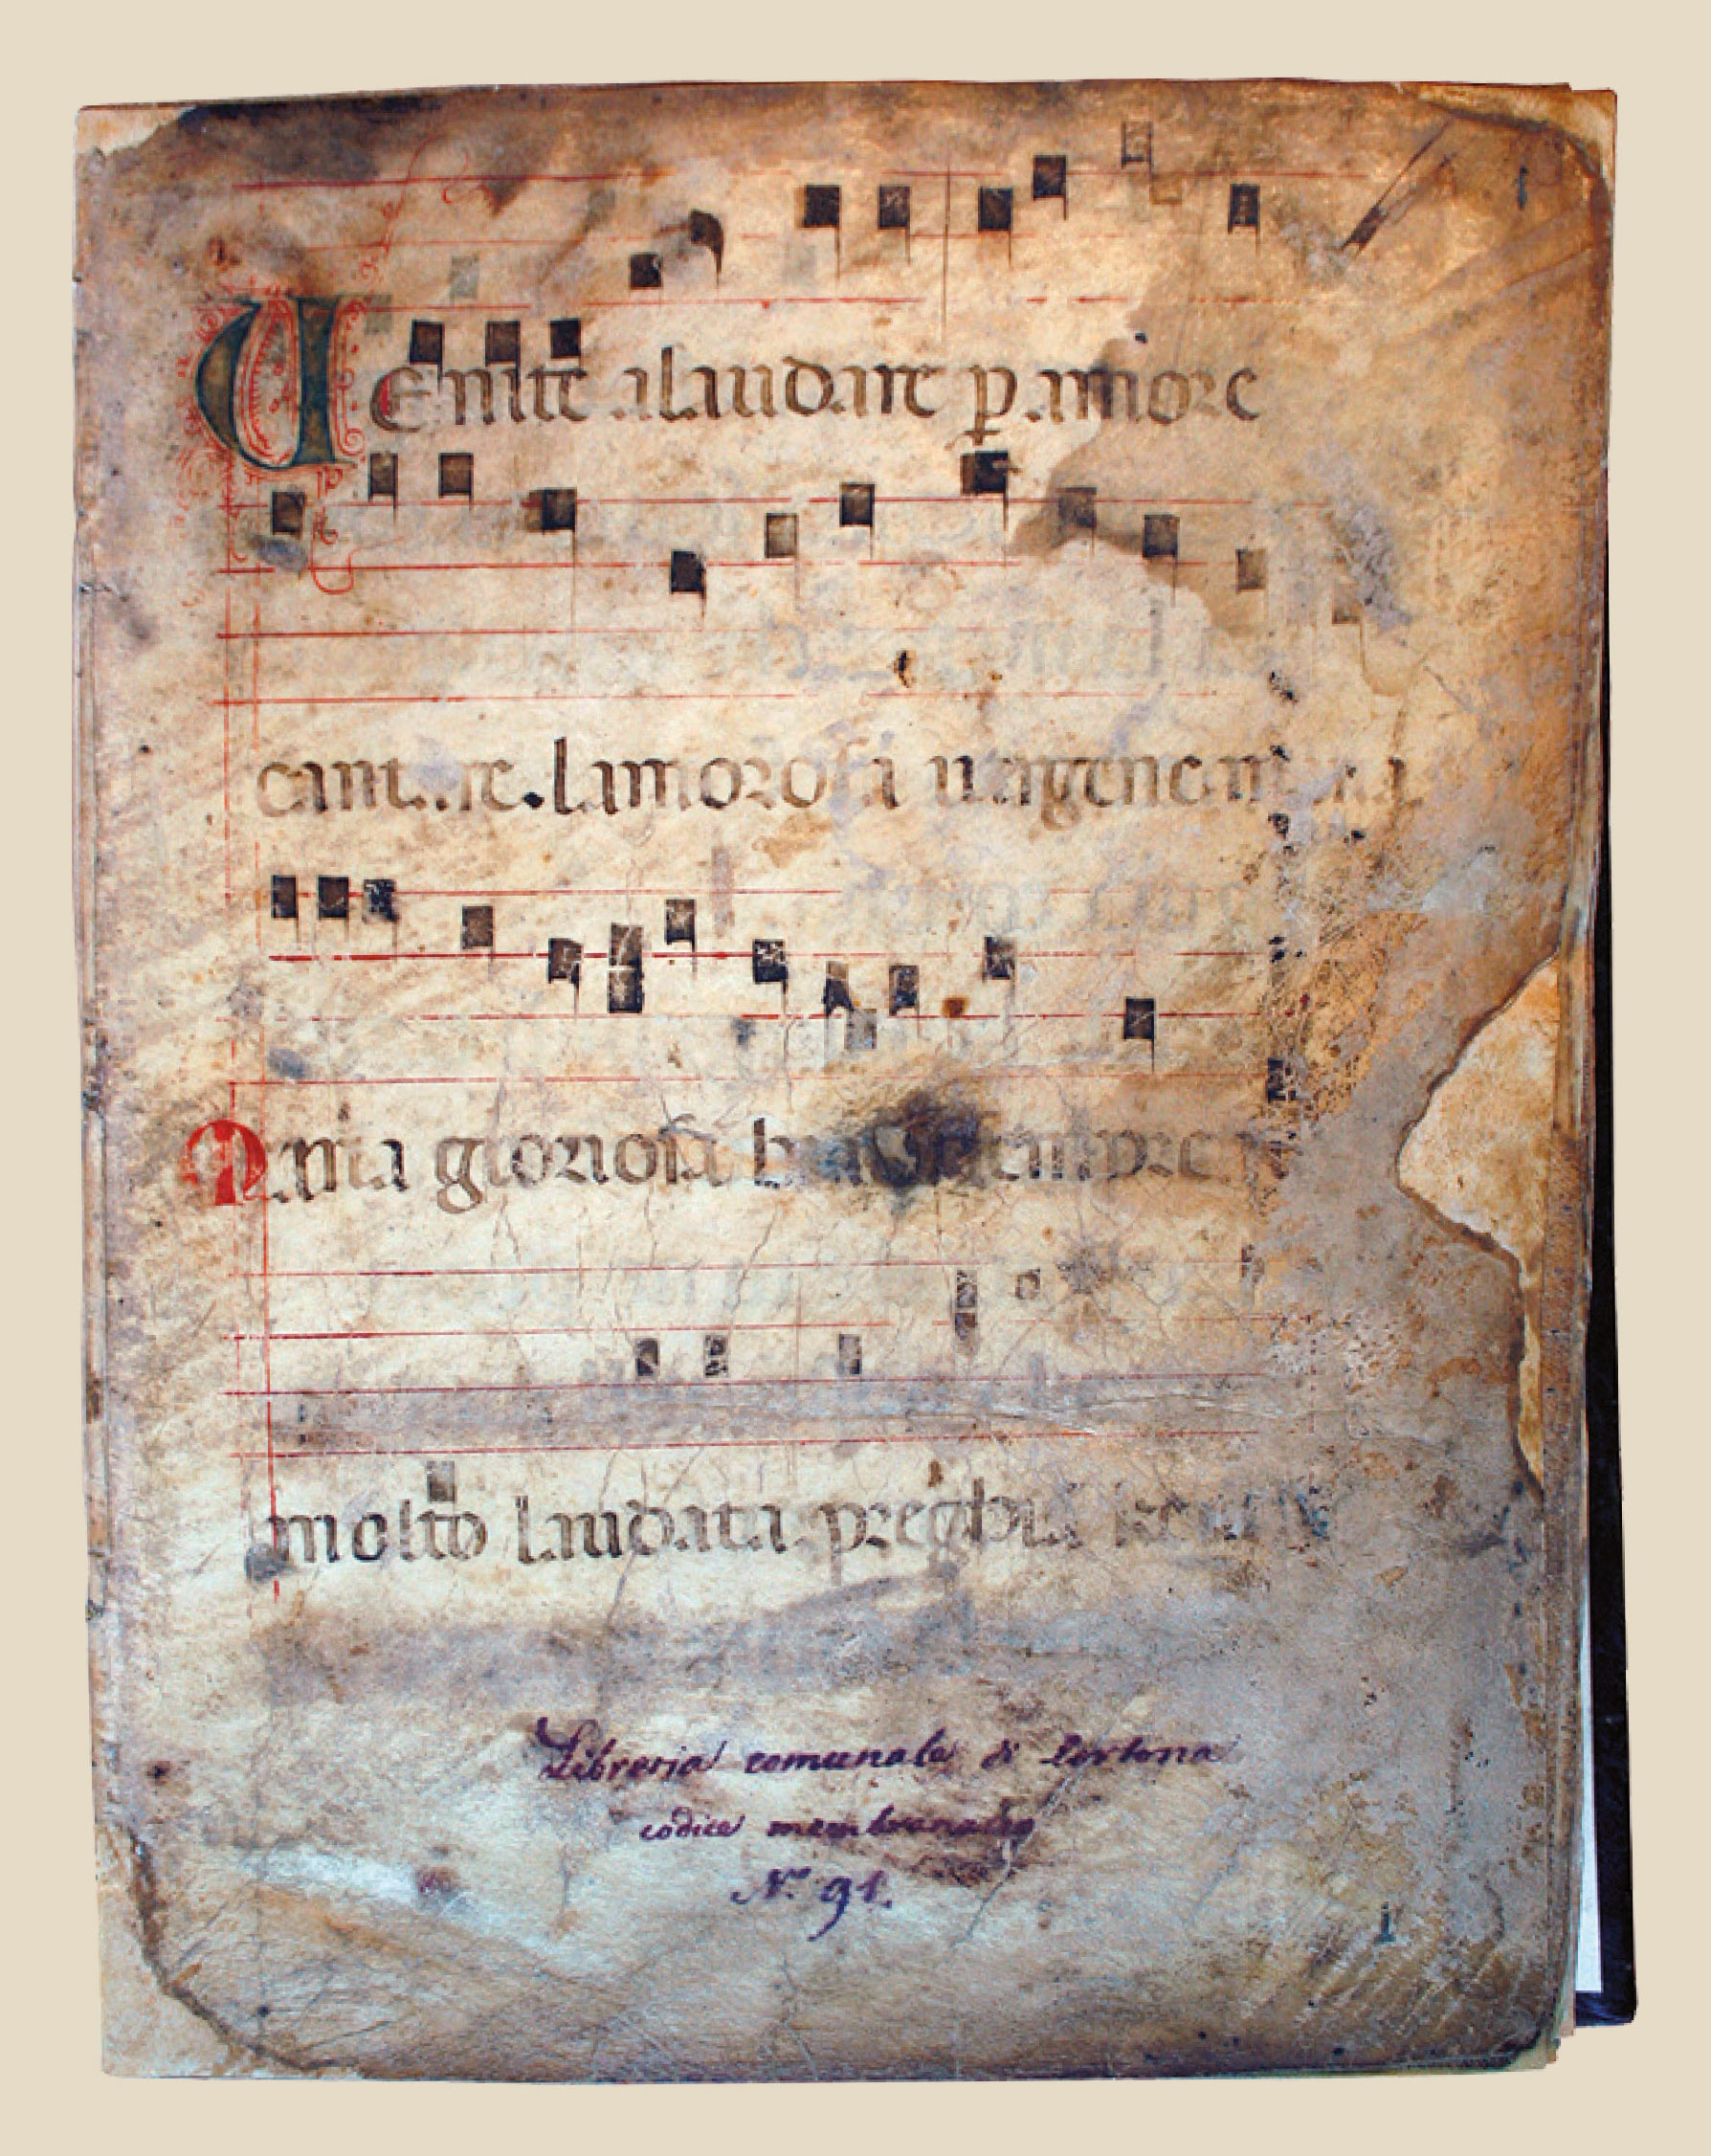 Uenite alaudare p amore
cantare.lamorosa uergene maria
Maria gloriosa biata sempre
molto laudata preghiã
Libreria comunale di Cortona
codice membranaceo
N.º 91.
1